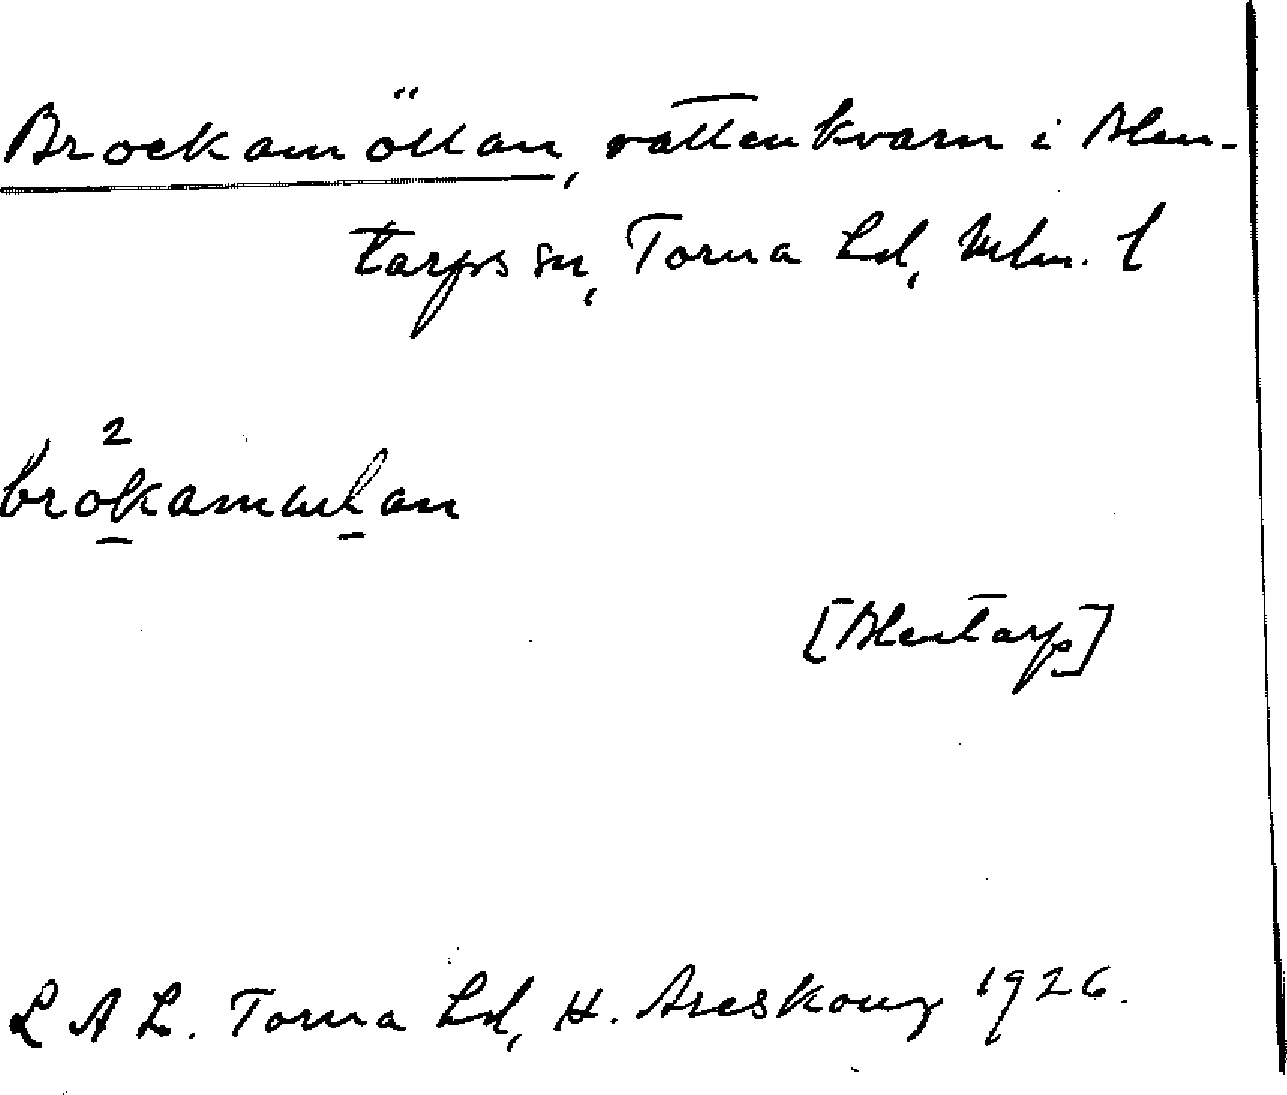 Brockamöllan, vattenkvarn i Blen-
tarps sn, Torna hd, Mlm. l
brokamulan
[Blentarp]
L A L. Torna hd, H. Areskoug 1926.